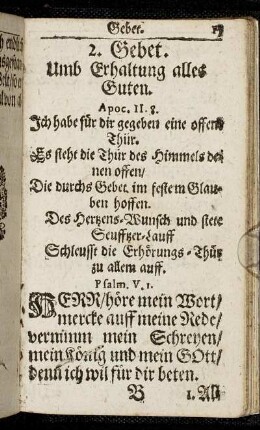 Gebet.
2. Gebet.
Umb Erhaltung alles
Guten.
Apoc. II. 8.
Ich habe für dir gegeben eine offene
Thür.
Es steht die Thür des Himmels de-
nen offen/
Die durchs Gebet im festem Glau-
ben hoffen.
Des Hertzens-Wunsch und stete
Seufftzer-Lauff
Schleusst die Erhörungs-Thür
zu allem auff.
Psalm. V. 1.
HERR/höre mein Wort/
mercke auff meine Rede/
vernimm mein Schreyen/
mein König und mein GOtt/
denn ich wil für dir beten.
B
1. All